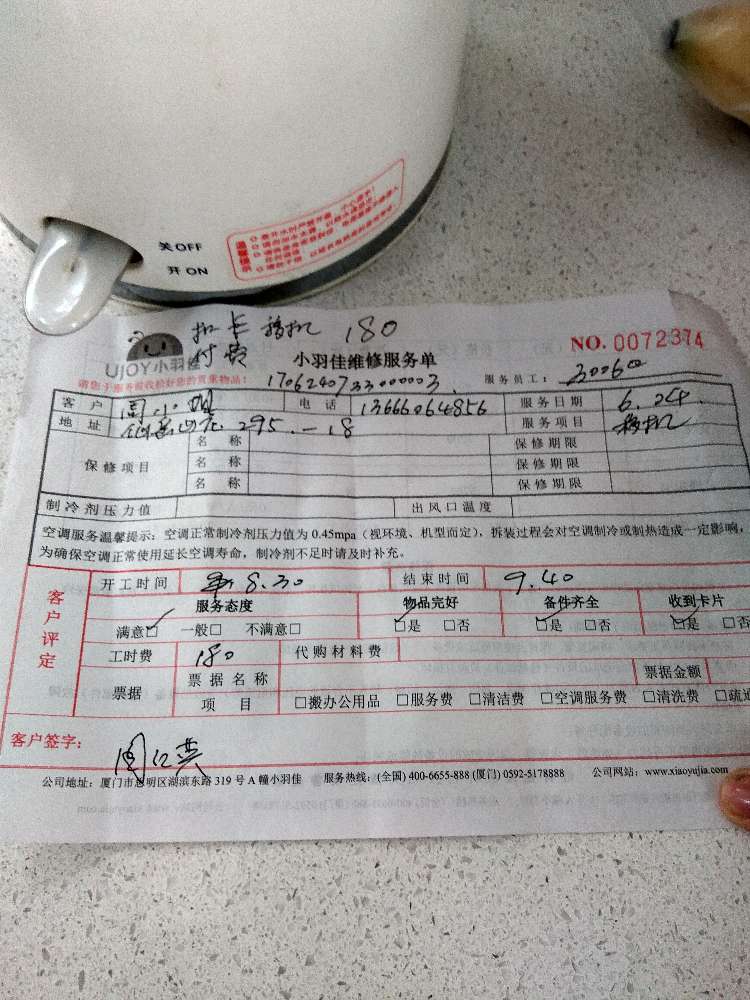 关 OFF
开 ON
温馨提示
扣卡 移机 180
付费
NO. 0072374
UJOY小羽佳
小羽佳维修服务单
请您于服务前收拾好您的贵重物品!
1706240733000003
服务员工: 30060
客户 周小 电话 13666064856 服务日期 6.24
地址 295.-18 服务项目 移机
保修项目 名称 保修期限
名称 保修期限
名称 保修期限
制冷剂压力值 出风口温度
空调服务温馨提示: 空调正常制冷剂压力值为 0.45mpa (视环境、机型而定), 拆装过程会对空调制冷或制热造成一定影响,
为确保空调正常使用延长空调寿命, 制冷剂不足时请及时补充。
客户评定
开工时间 8.30 结束时间 9.40
服务态度 物品完好 备件齐全 收到卡片
满意☑ 一般□ 不满意□ ☑是 □否 ☑是 □否 ☑是 □否
工时费 180 代购材料费
票据 票据名称 票据金额
项目 □搬办公用品 □服务费 □清洁费 □空调服务费 □清洗费 □疏通
客户签字:
公司地址: 厦门市思明区湖滨东路 319 号 A 幢小羽佳 服务热线: (全国) 400-6655-888 (厦门) 0592-5178888 公司网站: www.xiaoyujia.com